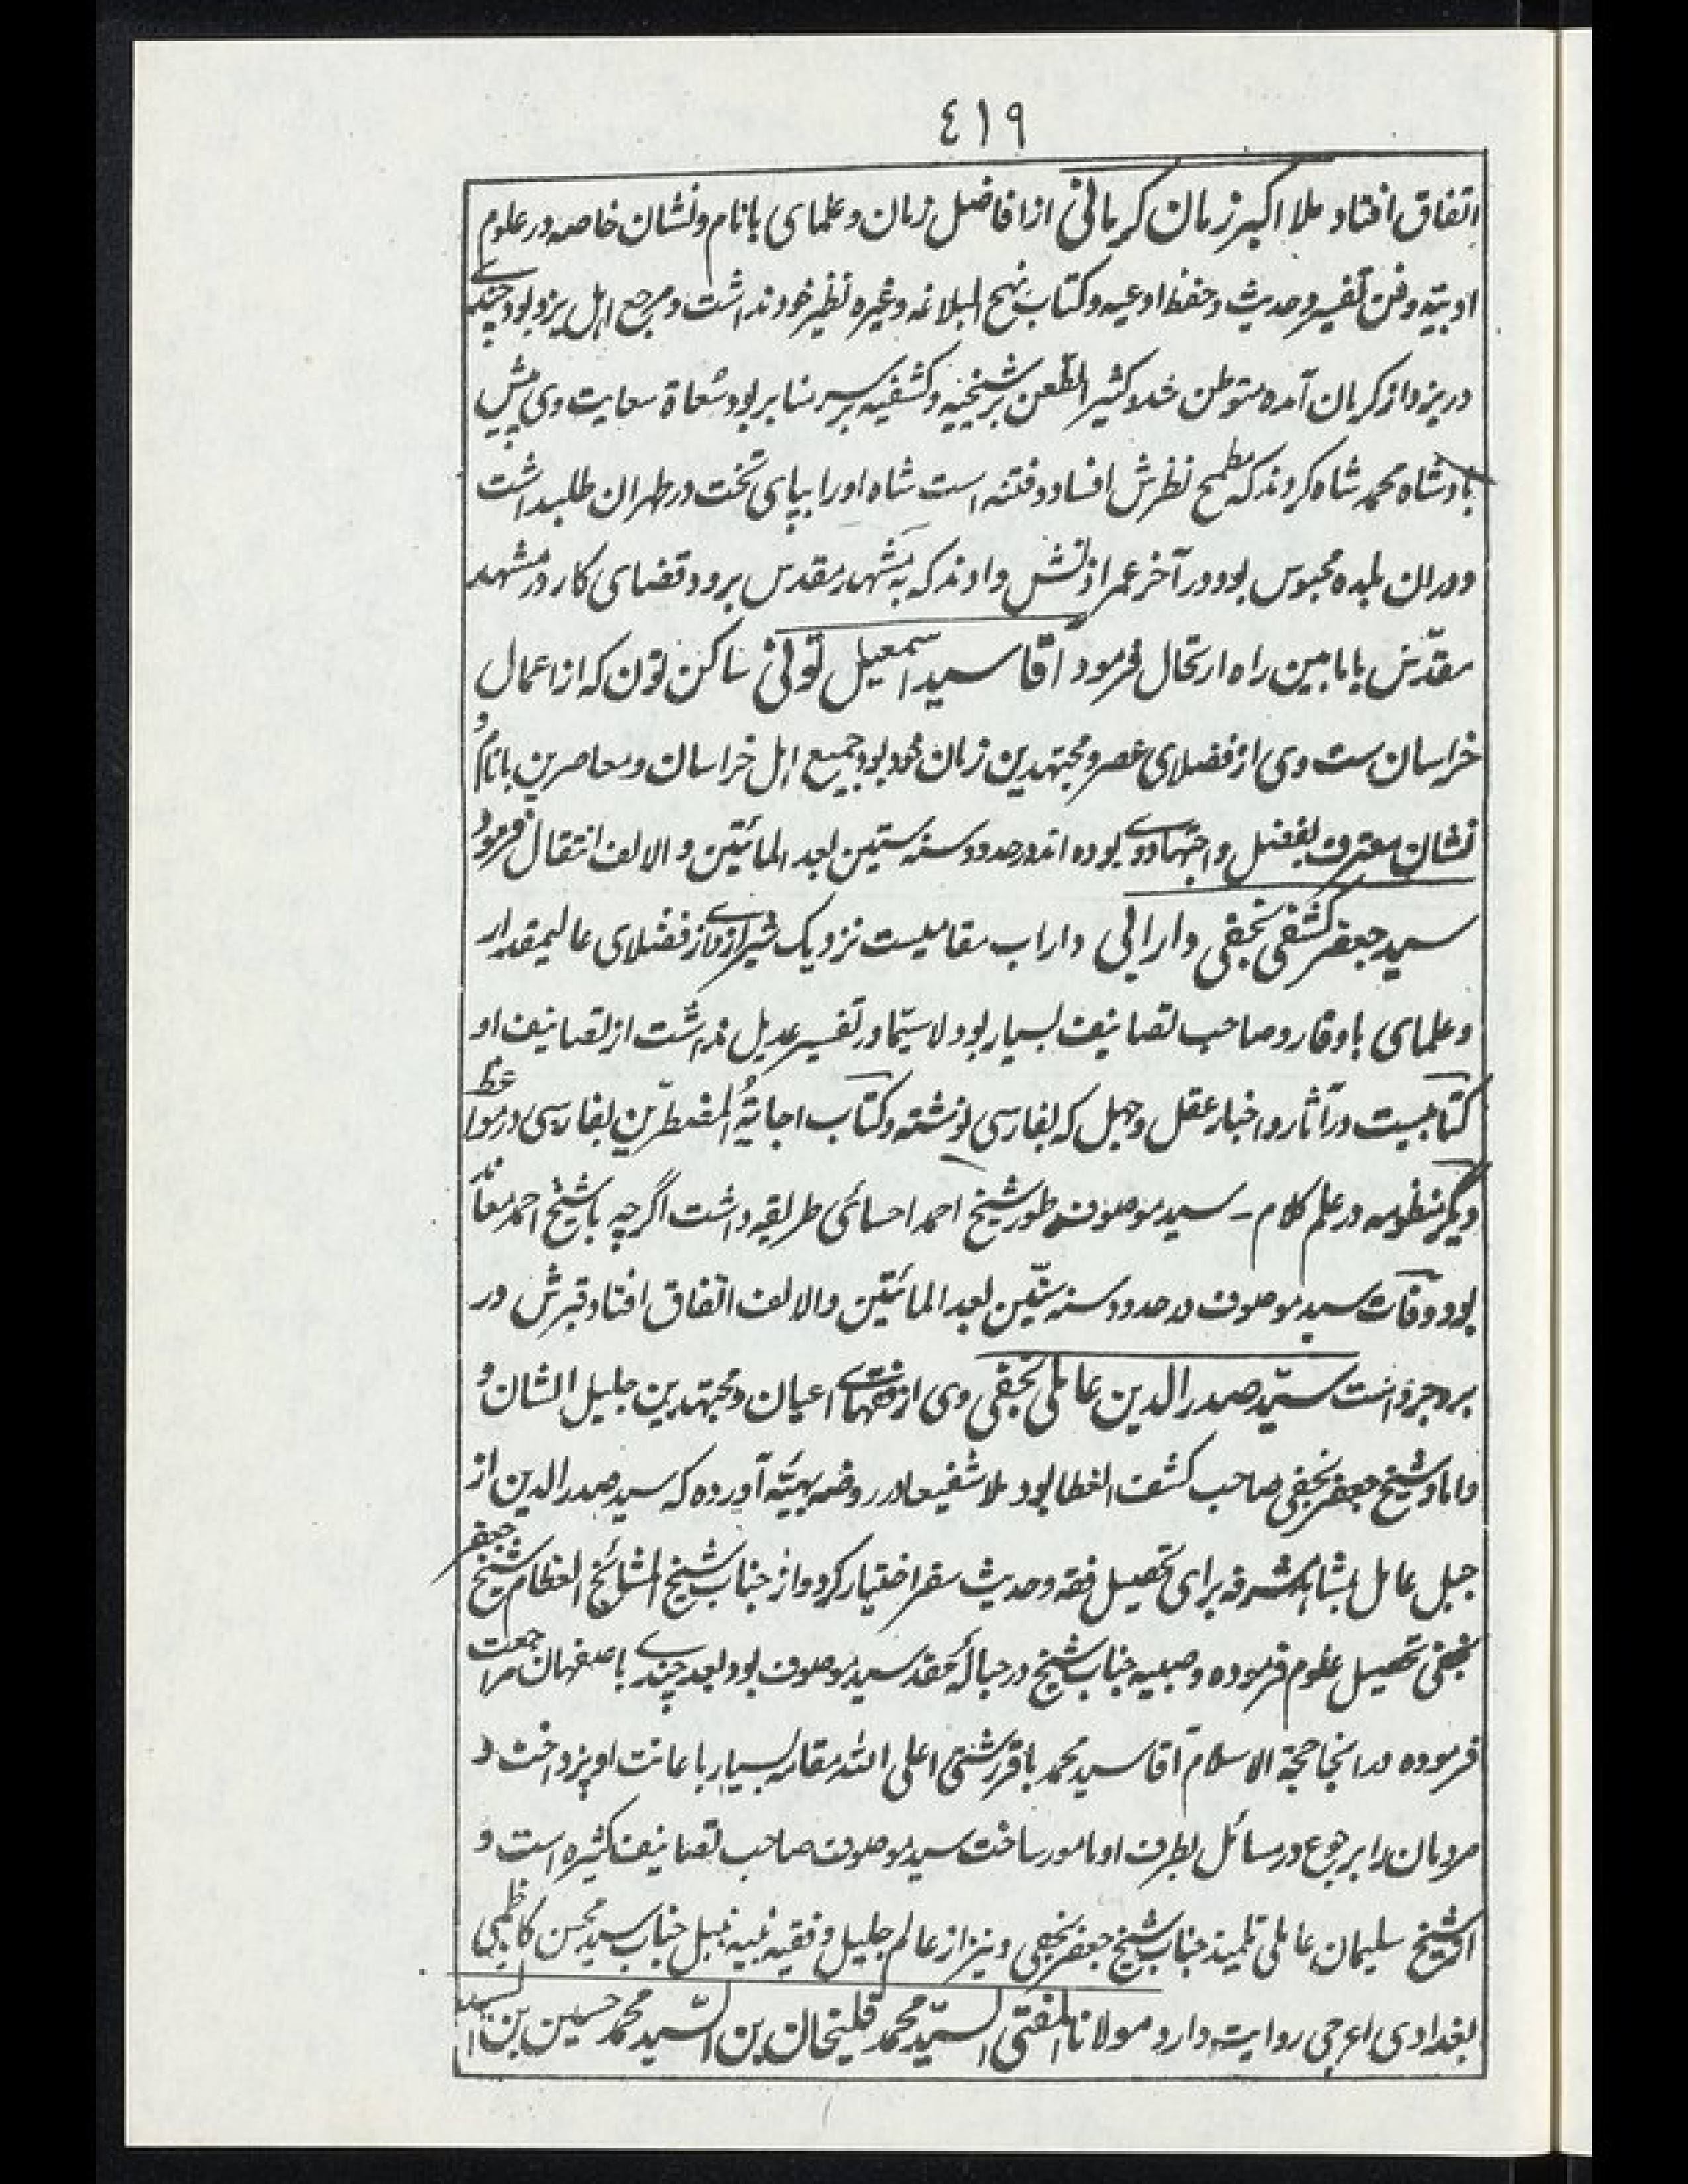 ٤١٩
اتفاق افتاد ملا اکبر زمان کرمانی از افاضل زمان و علمای بانام و نشان خاصه در علوم
ادبیّه و فن تفسیر و حدیث و حفظ ادعیه و کتاب نهج البلاغه و غیره نظیر خود نداشت و مرجع اهل یزد بود چندے
در یزد از کرمان آمده متوطن شد و کثیر الطعن بر شیخیه و کشفیه بر سر منابر بود سُعاة سعایت وی پیش
بادشاه محمد شاه کردند که مطمح نظرش افساد و فتنه است شاه او را بپای تخت در طهران طلبداشت
و دران بلده محبوس بود و در آخر عمر اذنش دادند که به مشهد مقدس برود قضای کار در مشهد
مقدّس باباسین راه ارتحال فرمود آقا سید اسمعیل تونی ساکن تون که از اعمال
خراسان ست وی از فضلای عصر و مجتهدین زمان خود بود جمیع اهل خراسان و معاصرین بانام و
نشان معترف بفضل و اجتهاد وے بوده اند در حدود سنه ستین بعد المائتین و الالف انتقال فرمود
سید جعفر کشفی نجفی دارابی داراب مقامیست نزدیک شیراز وے از فضلای عالیمقدار
و علمای باوقار و صاحب تصانیف بسیار بود لاسیّما در تفسیر عدیل نداشت از تصانیف او
کتابیست در آثار و اخبار عقل و جهل که بفارسی نوشته و کتاب اجابةُ المضطرّین بفارسی در مواعظ
دیگر منظومه در علم کلام ـ سید موصوف طور شیخ احمد احسائی طریقه داشت اگرچه با شیخ احمد معاند
بود و وفات سید موصوف در حدود سنه ستّین بعد المائتین والالف اتفاق افتاد قبرش در
بروجرد است سیّد صدر الدین عاملی نجفی وی از فقهاے اعیان و مجتهدین جلیل الشان و
داماد شیخ جعفر نجفی صاحب کشف الغطا بود ملا شفیعا در روضه بهیّه آورده که سید صدر الدین از
جبل عامل بمشاهد مشرفه برای تحصیل فقه و حدیث سفر اختیار کرد و از جناب شیخ المشائخ العظام شیخ جعفر
نجفی تحصیل علوم فرموده و صبیه جناب شیخ در حبالهٔ عقد سید موصوف بود بعد چندے باصفهان مراجعت
فرموده در انجا حجة الاسلام آقا سید محمد باقر رشتی اعلی الله مقامه بسیار باعانت او پرداخت و
مردمان را برجوع در مسائل بطرف او مامور ساخت سید موصوف صاحب تصانیف کثیره است و
از شیخ سلیمان عاملی تلمیذ جناب شیخ جعفر نجفی و نیز از عالم جلیل و فقیه نبیه نبیل جناب سید محسن کاظمی
بغدادی اعرجی روایت دارد مولانا المفتی السیّد محمد قلیخان بن السّید محمد حسین بن السید